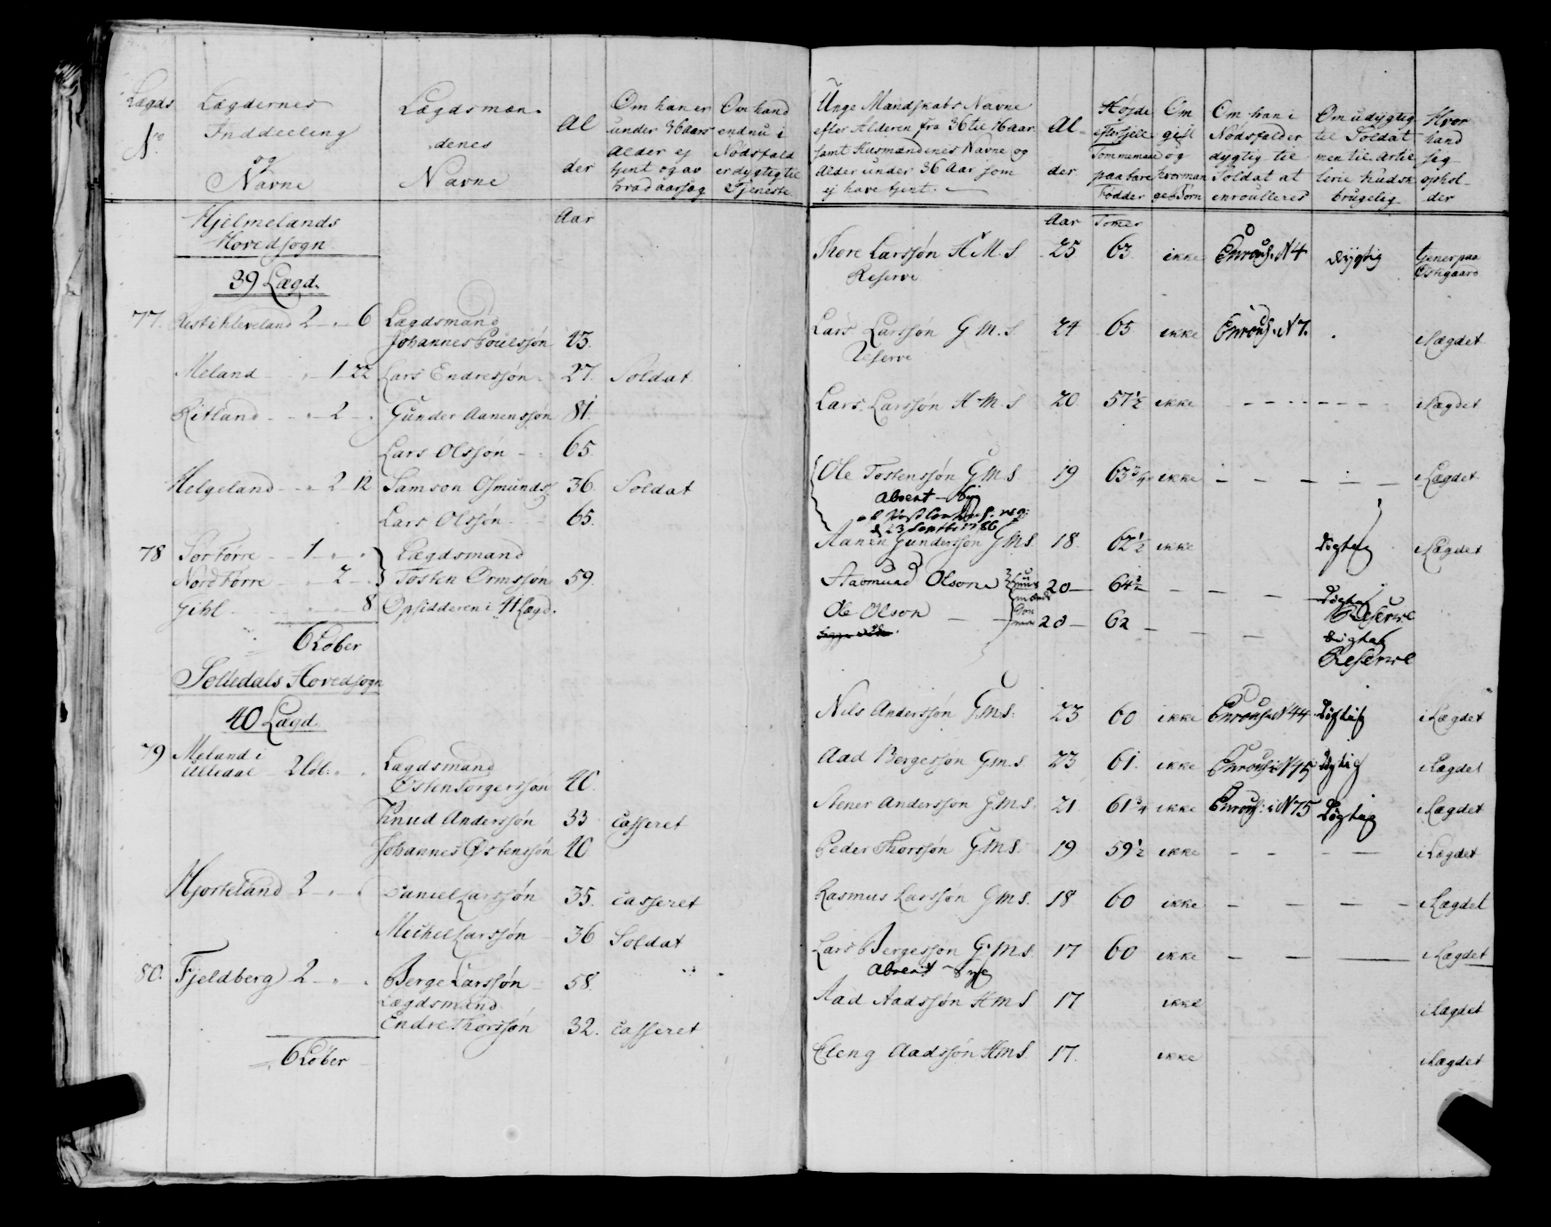 Lægds
No
Lægdernes
Inddeeling
og
Navne
Lægdsmæn-
denes
Navne
Al
der
Om han er
under 36 aars
Alder ej
tjent og av
hvad aarsag
Om hand
endnu i
Nødsfald
er dygtig til
Tjeneste
Aar
Hjelmelands
Hovedsogn
39 Lægd.
77. Kleveland 2 - " - 6 Lægdsmand
Johannes Poulssøn 43.
Meland - " - 1 - 22 Lars Endressøn 27. Soldat
Ritland - " - 2 - " Gunder Aanenssøn 81.
Lars Olssøn - 65.
Helgeland - " - 2 - 12 Samson Osmunds 36. Soldat
Lars Olssøn - 65.
78 Sør Førre - 1 - " - " Lægdsmand
Nord Førre - " - 2 - " Tosten Ormssøn 59.
8 Opsidderen i 41 Lægd.
6 Løber
Hovedsogn
40 Lægd.
79 Meland i
Ulledal - 2 løb. " Lægdsmand
Østen Torgerssøn 40.
Knud Anderssøn 33 Casseret
Johannes Østenssøn 40
Hjorteland 2 - " - " Daniel Larssøn 35. Casseret
Michel Larssøn 36 Soldat
80. Fjeldberg 2 - " - " Berge Larssøn 58.
Lægdsmand
Endre Thorssøn 32. Casseret
6 Løber
Unge Mandskabs Navne
efter Alderen fra 36 til 16 aar
samt Husmændenes Navne og
Alder under 36 Aar som
ej have tjent.
Al-
der
Højde
efter Sjell
Tommemaal
paa bare
Fødder
Om
gift
og
hvor man-
ge Børn
Om han i
Nødsfalder
dygtig til
Soldat at
enroulleres
Om udygtig
til Soldat
men til Artil
lerie Kudsk
brugelig
Hvor
hand
sig
ophol-
der
Aar Tomer
Thore Larssøn H. M. S 25 63. ikke Enrous. N 4 dygtig tjener paa
Reserve Østigaard
Lars Larssøn G. M. S 24 65 ikke Enrous. N 7. i Lægdet
Reserve
Lars Larssøn H. M. S 20 57 1/2 ikke - - - - - - i Lægdet
Ole Tostenssøn G. M. S 19 63 3/4 ikke - - - - - i Lægdet
Absent -
d 23 Septbr 1786
Aanen Gunderssøn G. M. S 18. 62 1/2 ikke Dögtig i Lægdet
Aasmund Olson 20 - 64 1/2 - - - - Dögtig
Reserve
Ole Olson - - 20 - 62 - - - Dögtig
Reserve
Nils Anderssøn G. M. S. 23 60 ikke Enrous. N 44 Dögtig i Lægdet
Aad Bergessøn G. M. S 23 61. ikke Enrous. N 45 Dögtig i Lægdet
Stener Anderssøn G. M. S. 21 61 3/4 ikke Enrous. N 75 Dögtig i Lægdet
Peder Thorssøn G. M. S. 19 59 1/2 ikke - - - - i Lægdet
Rasmus Larssøn G. M. S. 18 60 ikke - - - - i Lægdet
Lars Bergessøn G. M. S. 17 60 ikke - - - i Lægdet
Absent
Aad Aadssøn H. M. S 17 ikke i Lægdet
Eleng Aadssøn H. M. S. 17. ikke i Lægdet